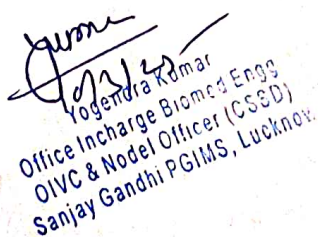 Yogendra Kumar
Office Incharge Biomed Engg
OIVC & Nodel Officer (CSED)
Sanjay Gandhi PGIMS, Lucknow